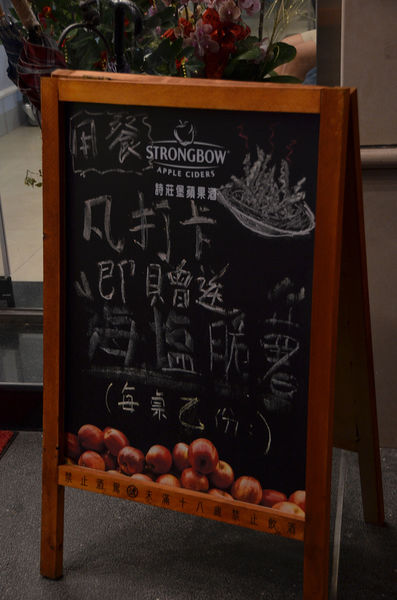 用餐
STRONGBOW
APPLE CIDERS
詩莊堡蘋果酒
凡打卡
即贈送
海鹽脆薯
(每桌乙份:)
禁止酒駕 未滿十八歲禁止飲酒